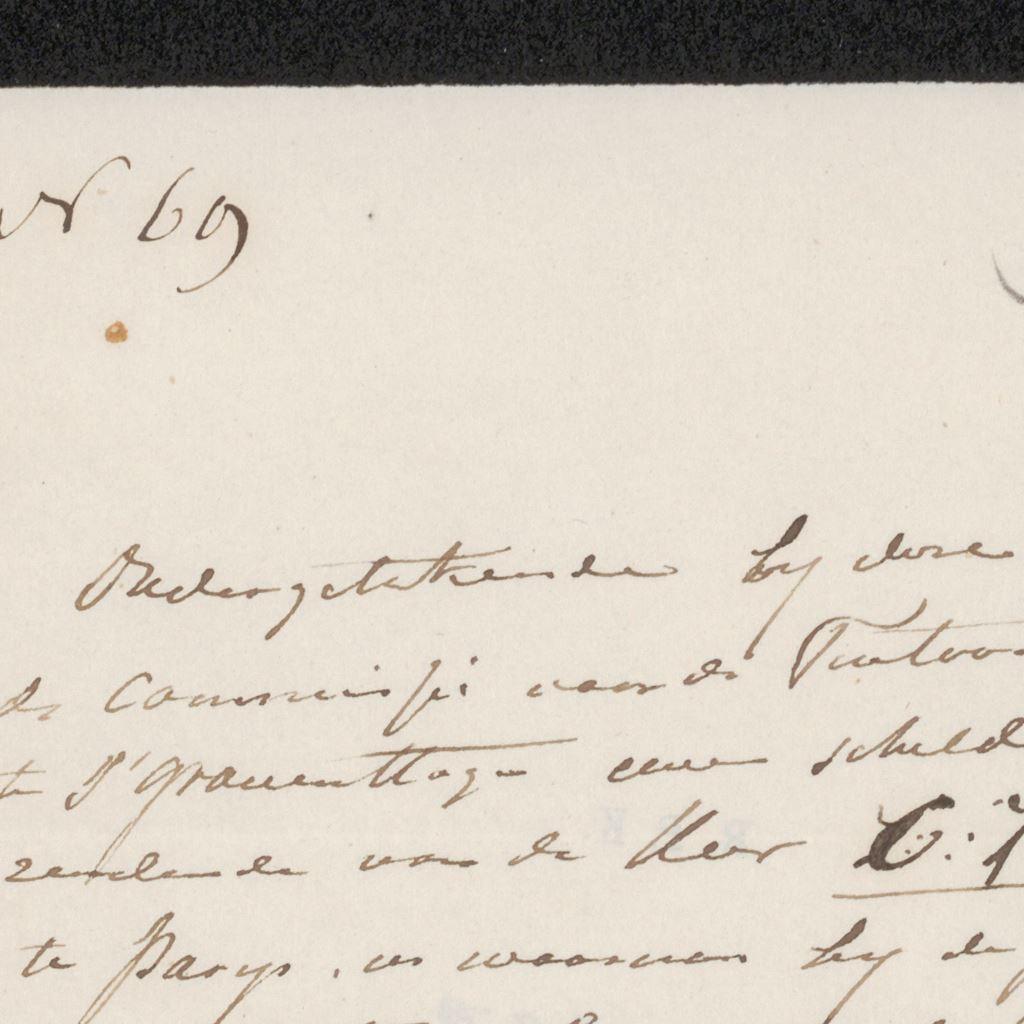 N 69
Ondergetekende by deze
de Commissie van de Tentoon
te S'Gravenhage een schild
zendende van de Heer C: J
te Parys, en waarvan by de